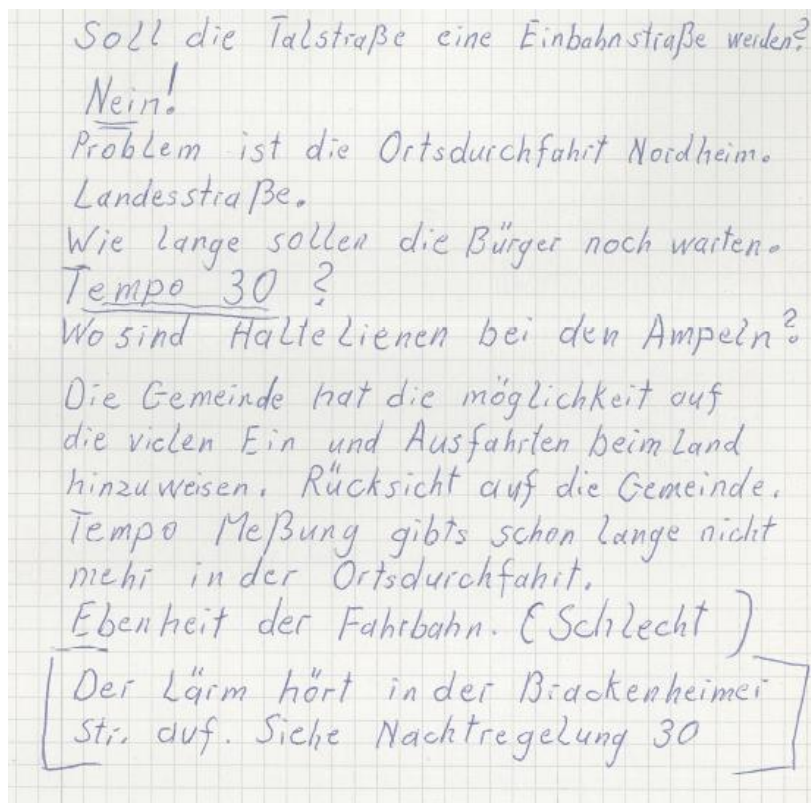 Soll die Talstraße eine Einbahnstraße werden?
Nein!
Problem ist die Ortsdurchfahrt Nordheim.
Landesstraße.
Wie lange sollen die Bürger noch warten.
Tempo 30 ?
Wo sind Haltelienen bei den Ampeln?
Die Gemeinde hat die möglichkeit auf
die vielen Ein und Ausfahrten beim Land
hinzuweisen. Rücksicht auf die Gemeinde.
Tempo Meßung gibts schon lange nicht
mehr in der Ortsdurchfahrt.
Ebenheit der Fahrbahn. (Schlecht)
[Der Lärm hört in der Brackenheimer
Str. auf. Siehe Nachtregelung 30]